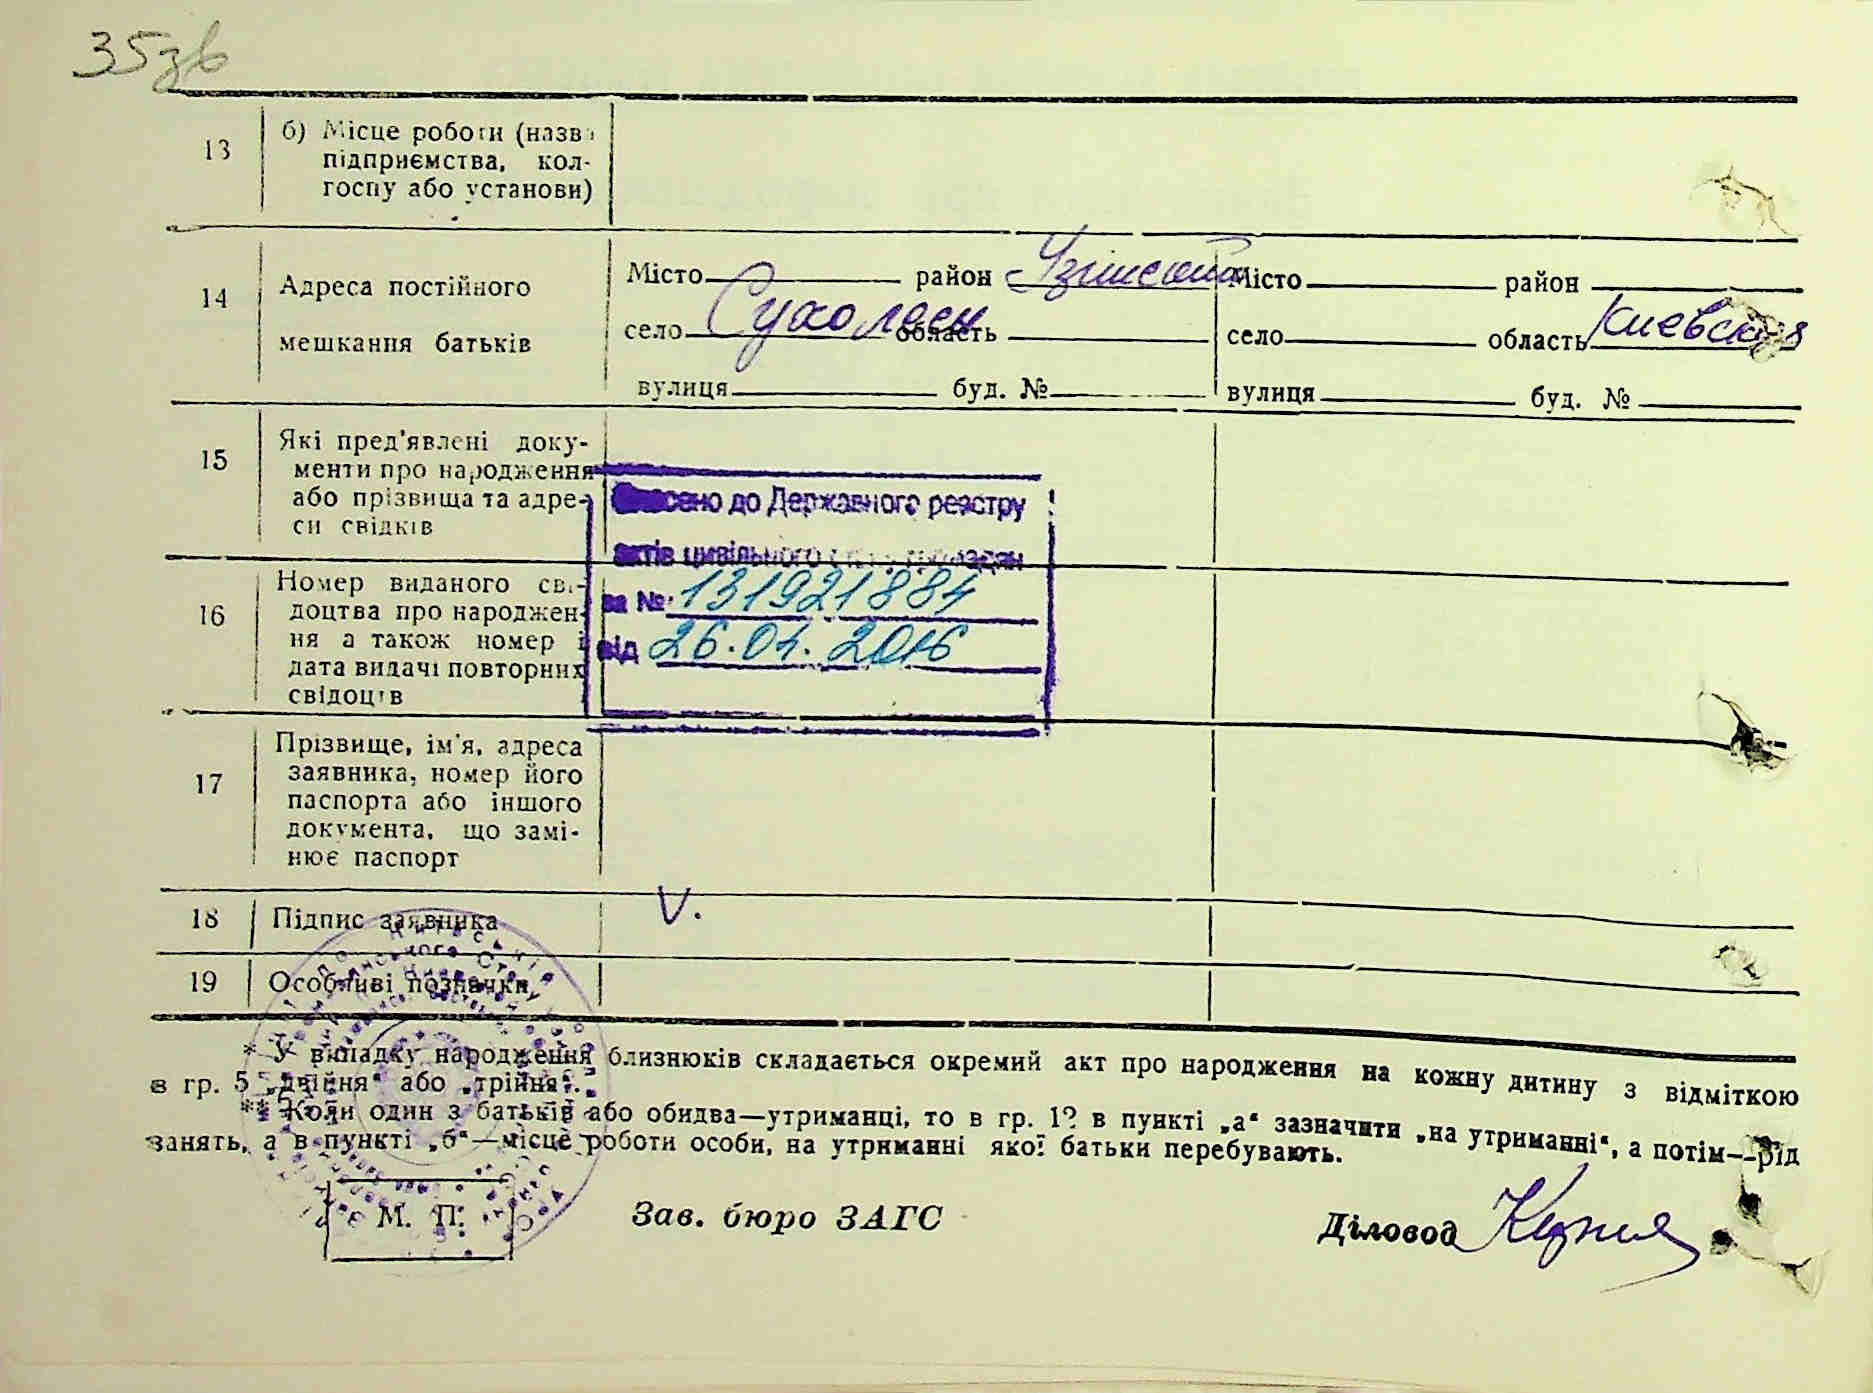 35зв
13 б) Місце роботи (назва
підприємства, кол-
госпу або установи)
14 Адреса постійного
мешкання батьків
Місто район Узинский Місто район
село Сухолесы область село область Киевская
вулиця буд. № вулиця буд. №
15 Які пред'явлені доку-
менти про народження
або прізвища та адре-
си свідків
Внесено до Державного реєстру
актів цивільного стану громадян
за № 131921884
від 26.04.2016
16 Номер виданого сві-
доцтва про народжен-
ня а також номер і
дата видачі повторних
свідоцтв
17 Прізвище, ім'я, адреса
заявника, номер його
паспорта або іншого
документа, що замі-
нює паспорт
18 Підпис заявника V.
19 Особливі позначки
* У випадку народження близнюків складається окремий акт про народження на кожну дитину з відміткою
в гр. 5 „двійня“ або „трійня“.
** Коли один з батьків або обидва—утриманці, то в гр. 12 в пункті „а“ зазначити „на утриманні“, а потім—рід
занять, а в пункті „б“—місце роботи особи, на утриманні якої батьки перебувають.
М. П. Зав. бюро ЗАГС Діловод